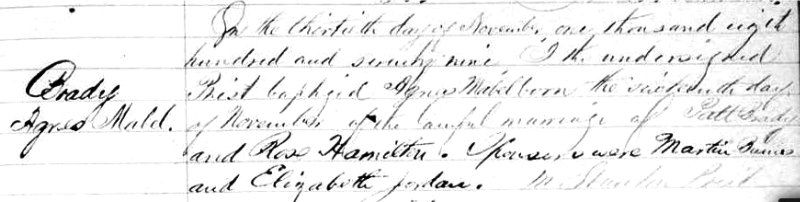 On the thirtieth day of November, one thousand eight
hundred and seventy nine, I the undersigned
Brady
Priest baptized Agnes Mabel born the sixteenth day
Agnes Mabl.
of November of the lawful marriage of Patt Brady
and Rose Hamilton. Sponsors were Martin
and Elizabeth Jordan.